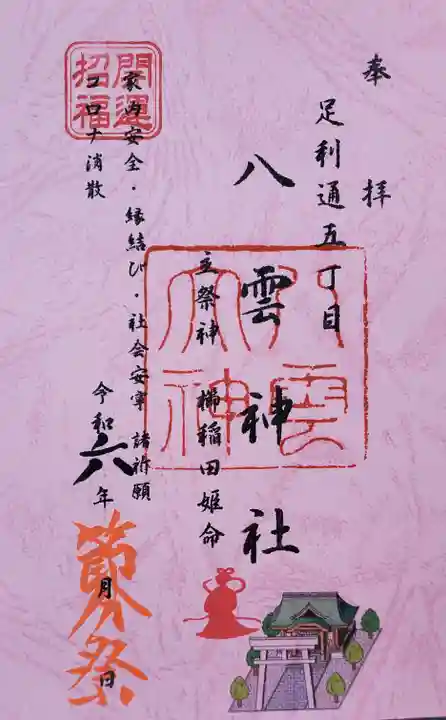 奉拝
足利通五丁目
八雲神社
主祭神 櫛稲田姫命
家内安全・縁結び・社会安寧 諸祈願
コロナ消散
令和六年 月 日
節分祭
開運
招福
八雲
大神